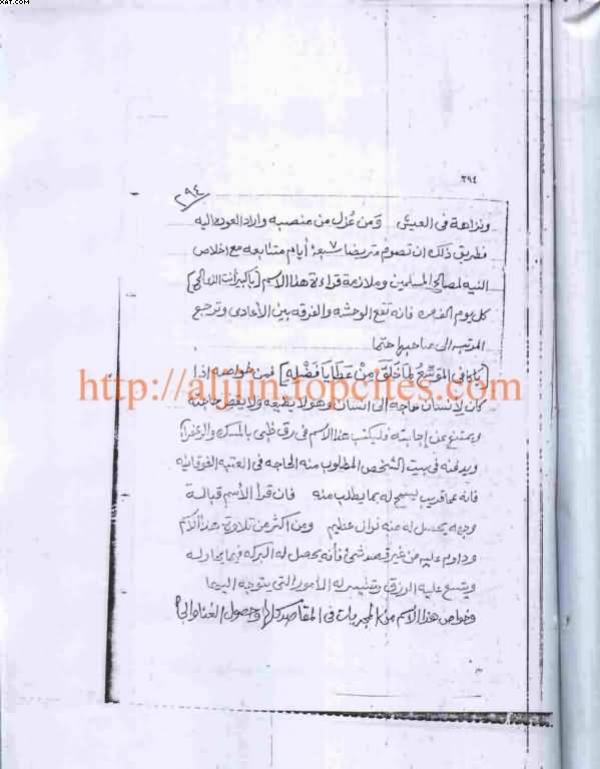 xAT.COM
٢٩٤
٢٩٤
ونزاهة فى العيش ومن عُزل من منصبه واراد العوده اليه
فطريق ذلك ان تصوم متريضا ٧ سبعة أيام متتابعه مع اخلاص
النيه لمصالح المسلمين وملازمة قراءة هذا الاسم [ياكبير أنت الذى
كل يوم الف مره فانه تقع الوحشه والفرقه بين الأعادى وترجع
المرتب الى صاحبها حتما
[ياكافى الموسّعُ لما خَلَقَ مِنْ عَطايا فَضْلِه] فمن خواصه اذا
http://aljjin.topcites.com
كان لانسان حاجه الى انسان وهو لا يطيعه ولا يقض حاجته
ويمتنع عن إجابته فليكتب هذا الاسم فى رق ظبى بالمسك والزعفران
ويدفنه فى بيت الشخص المطلوب منه الحاجه فى العتبه الفوقانيه
فانه عما قريب يسمح له بما يطلب منه فان قرأ الأسم قبالة
وجهه يحصل له منه نوال عظيم ومن اكثر من تلاوة هذا الاسم
وداوم عليه من غير قصد شئ فأنه يحصل له البركه فيما يحاوله
ويتسع عليه الرزق وتتيسر له الأمور التى يتوجه اليها
وخواص هذا الاسم من المجربات فى المقاصد كلها وحصول الغنا